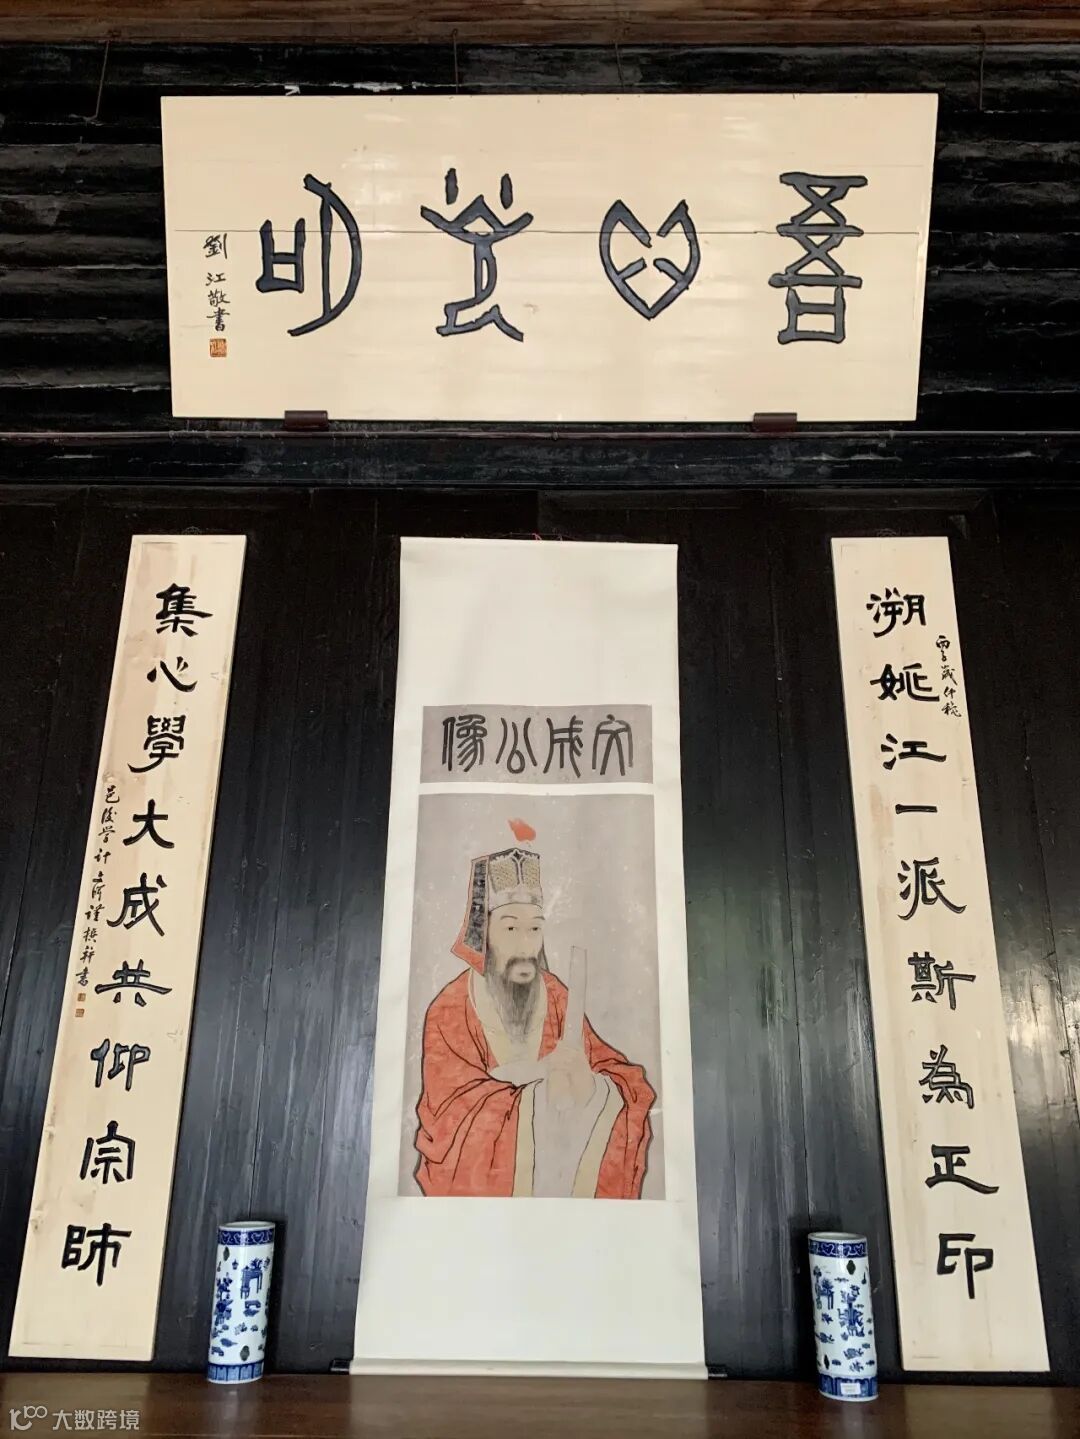 吾心光明
劉江敬書
文成公像
溯姚江一派斯為正印
丙子歲仲穐
集心學大成共仰宗師
邑後学计文渊謹撰并書
大数跨境